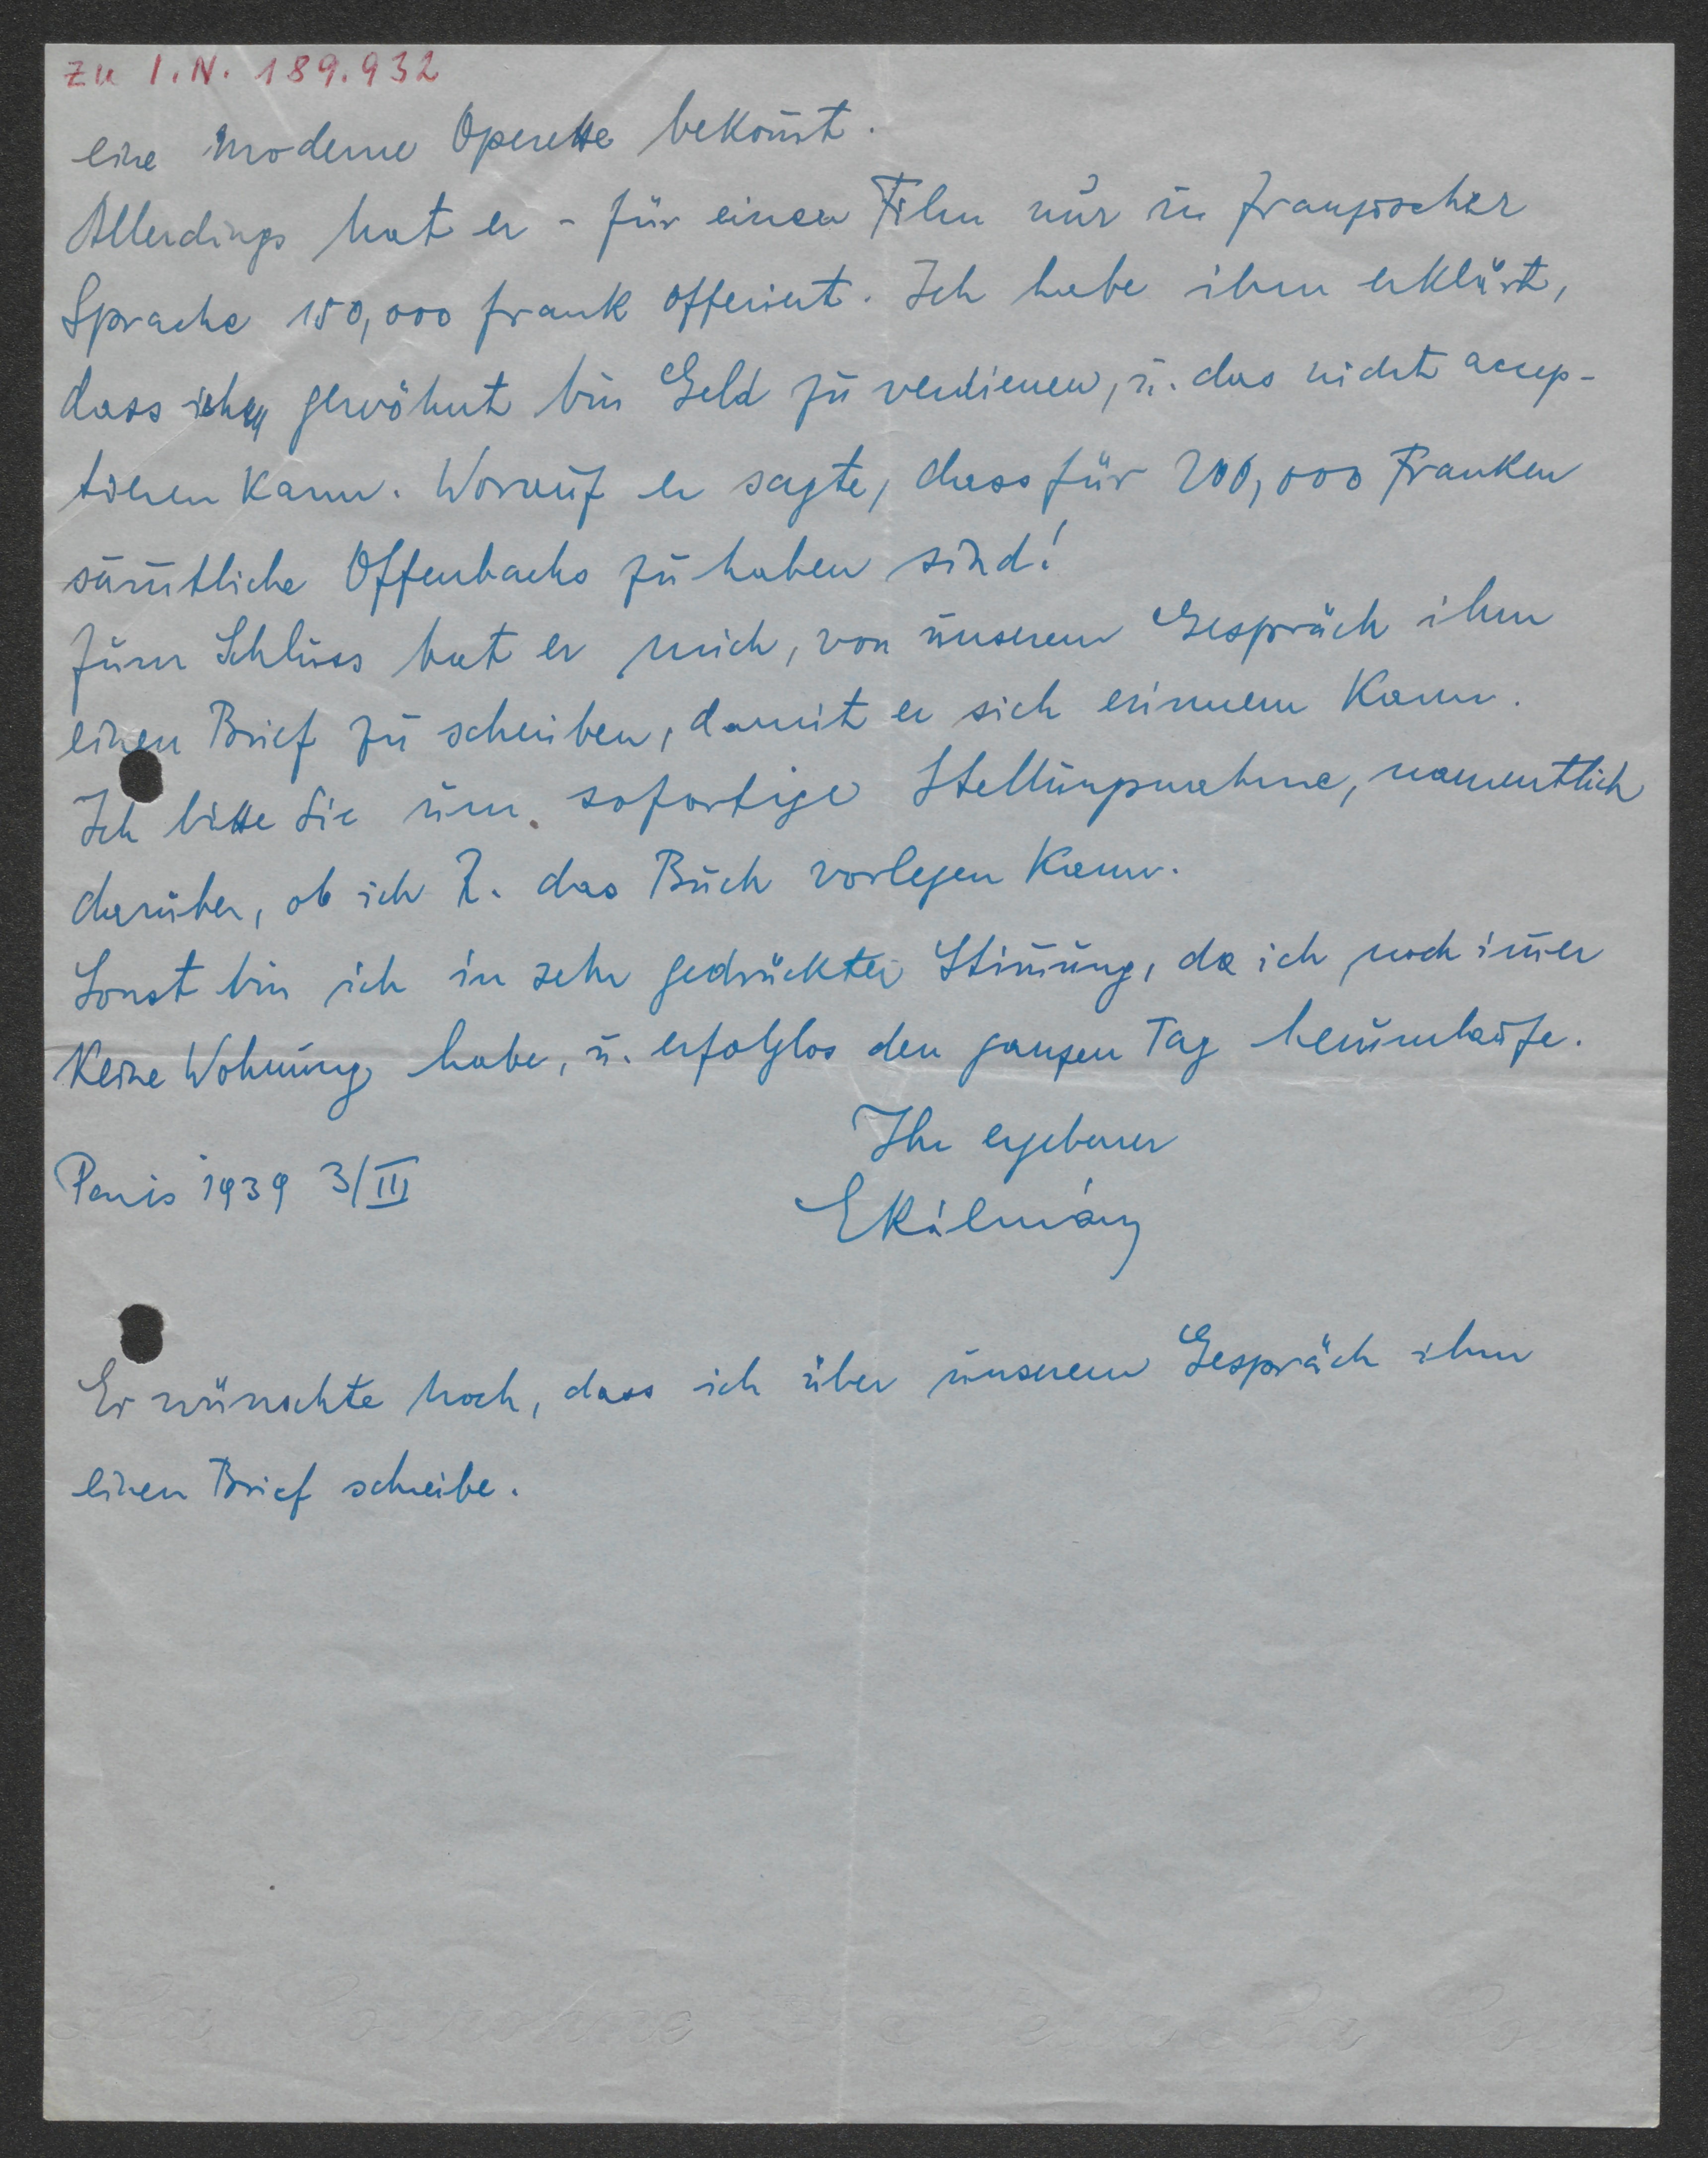 zu I.N. 189.932
eine moderne Operette bekom̅t.
Allerdings hat er - für einen Film nur in französcher
Sprache 150,000 frank offeriert. Ich habe ihm erklärt,
dass ich gewöhnt bin Geld zu verdienen, u. das nicht accep-
tieren kann. Worauf er sagte, dass für 200,000 Franken
säm̅tliche Offenbachs zu haben sind!
Zum Schluss bat er mich, von unserem Gespräch ihm
einen Brief zu schreiben, damit er sich erinnern kann.
Ich bitte Sie um sofortige Stellungnahme, namentlich
darüber, ob ich Z. das Buch vorlegen kann.
Sonst bin ich in sehr gedrückter Stim̅ung, da ich noch im̅er
keine Wohnung habe, u. erfolglos den ganzen Tag herumlaufe.
Ihr ergebener
Paris 1939 3/III
EKálmán
Er wünschte noch, dass ich über unserem Gespräch ihm
einen Brief schreibe.